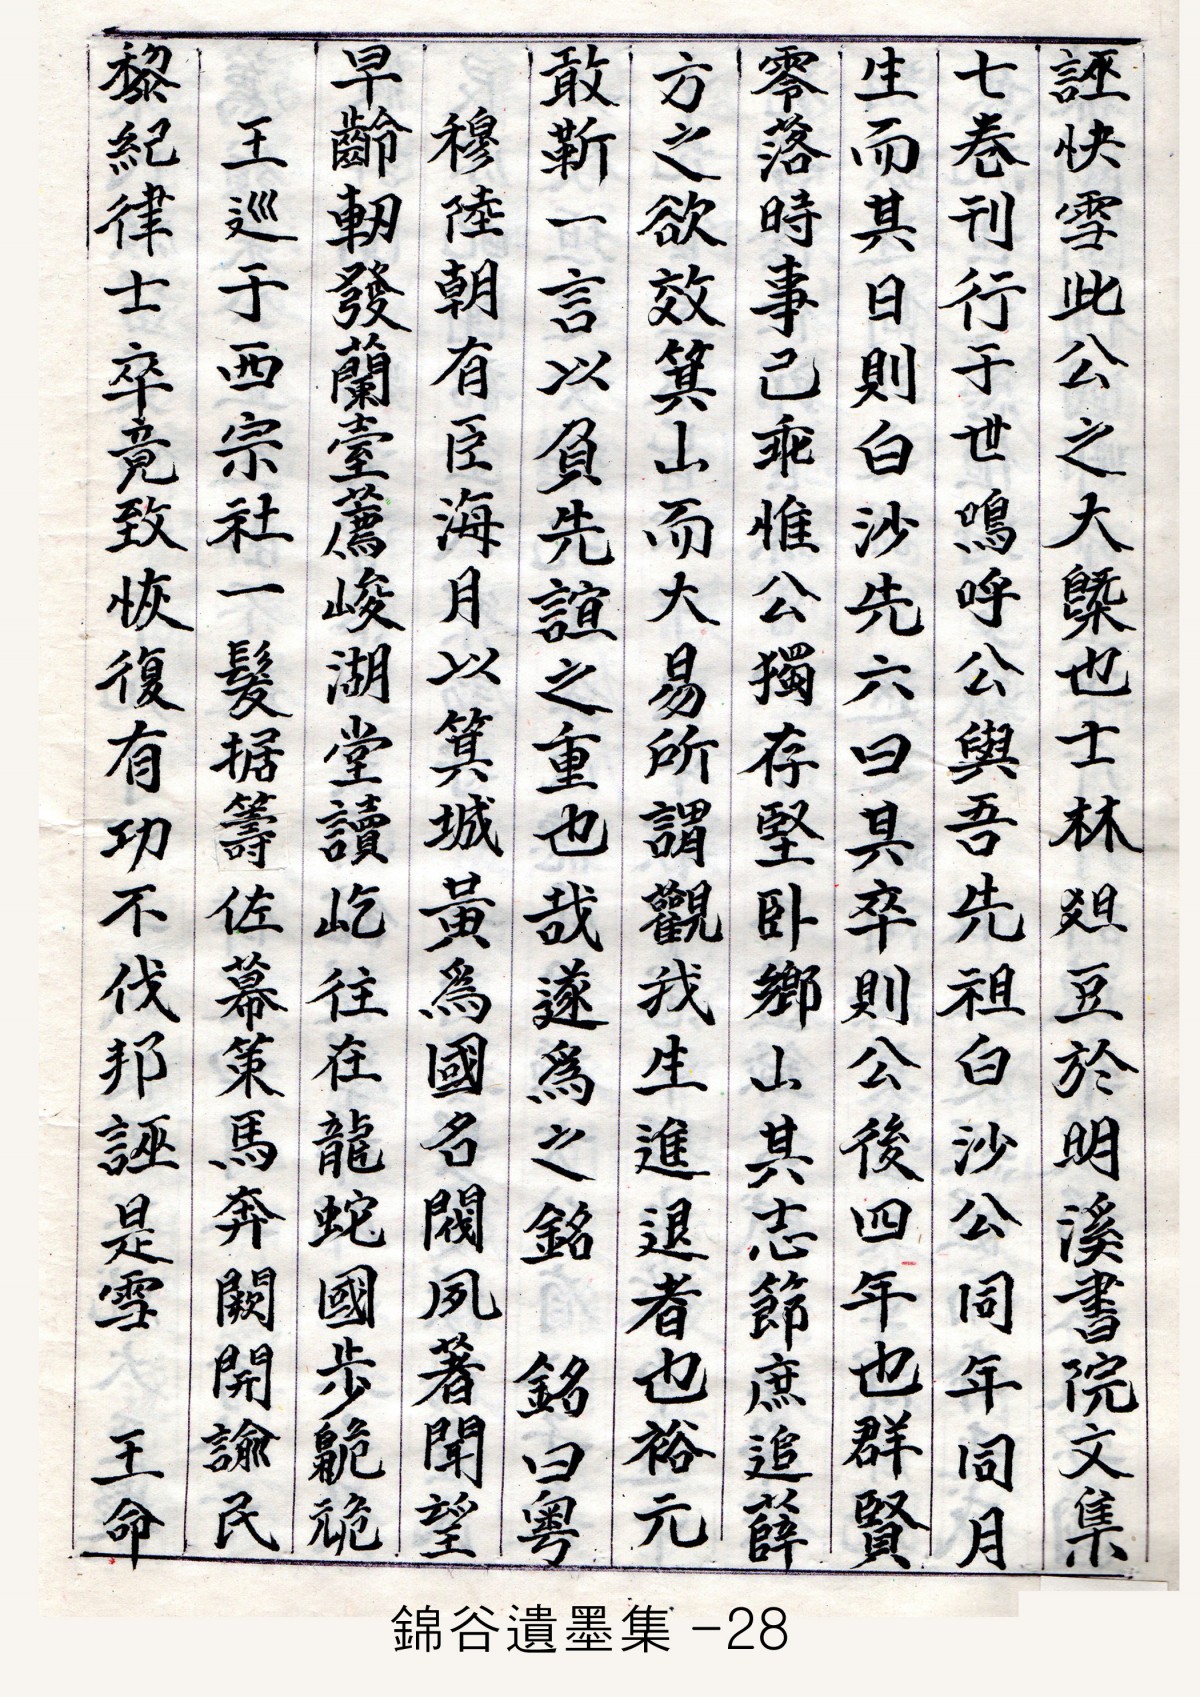 誣快雪此公之大槩也士林爼豆於明溪書院文集
七卷刊行于世嗚呼公與吾先祖白沙公同年同月
生而其日則白沙先六日其卒則公後四年也群賢
零落時事已乖惟公獨存堅卧鄉山其志節庶追薛
方之欲效箕山而大易所謂觀我生進退者也裕元
敢靳一言以負先誼之重也哉遂爲之銘 銘曰粤
穆陸朝有臣海月以箕城黃爲國名閥夙著聞望
早齡軔發蘭臺薦峻湖堂讀屹往在龍蛇國步臲卼
王巡于西宗社一髮据籌佐幕策馬奔闕開諭民
黎紀律士卒竟致恢復有功不伐邦誣是雪 王命
錦谷遺墨集 -28